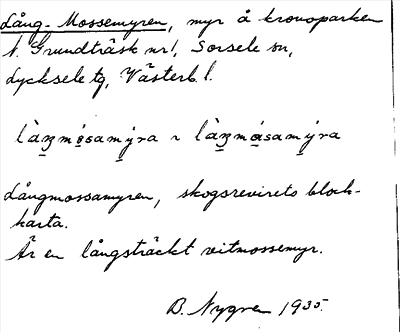 Lång-Mossemyren, myr å kronoparken
N. Grundträsk nr 1, Sorsele sn,
Lycksele tg, Västerb. l.
làŋmósamýra ~ làŋmåsamýra
Långmossamyren, skogsrevirets block-
karta.
Är en långsträckt vitmossemyr.
B. Nygren 1935.